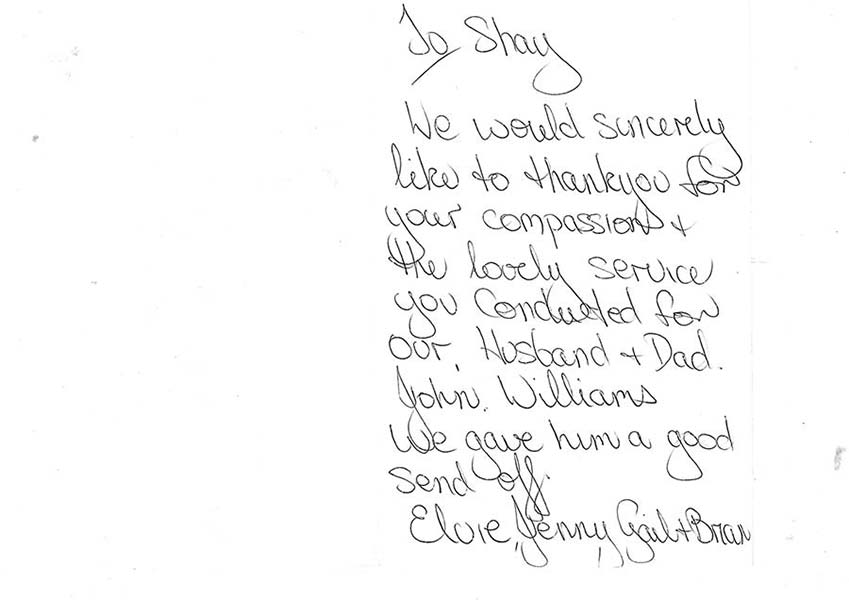 To Shay
We would sincerely
like to thankyou for
your compassion +
the lovely service
you conducted for
our. Husband + Dad.
John. Williams
We gave him a good
send off.
Elvie, Jenny, Gail + Brian